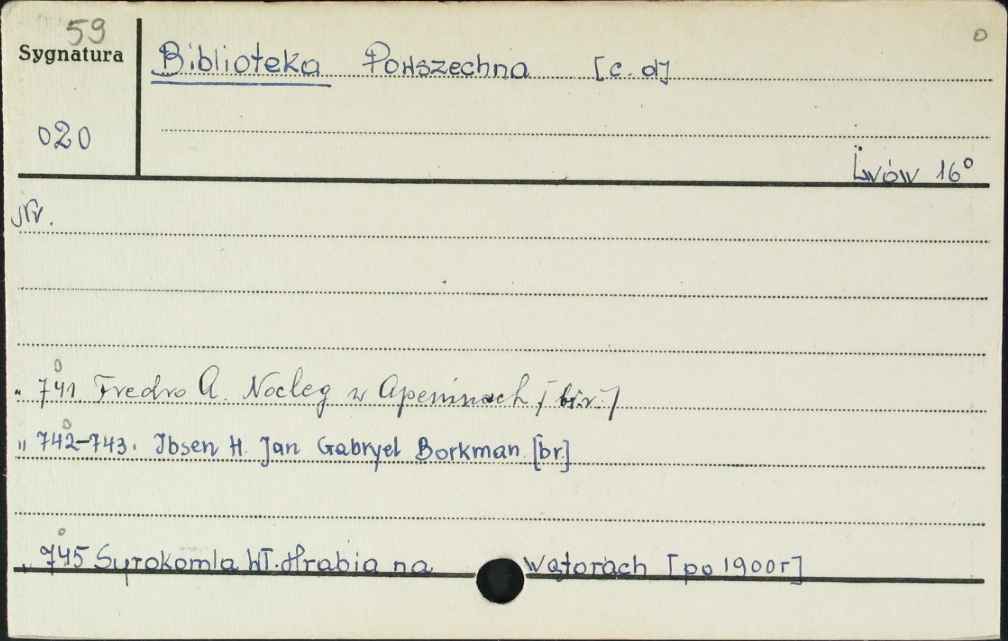 59
Sygnatura
020
Biblioteka Powszechna [c.d]
Lwów 16°
Nr.
" 741. Fredro A. Nocleg w Apeninach [br.]
" 742-743. Ibsen H. Jan Gabryel Borkman [br.]
" 745 Syrokomla Wł. Hrabia na Wątorach [po 1900r]